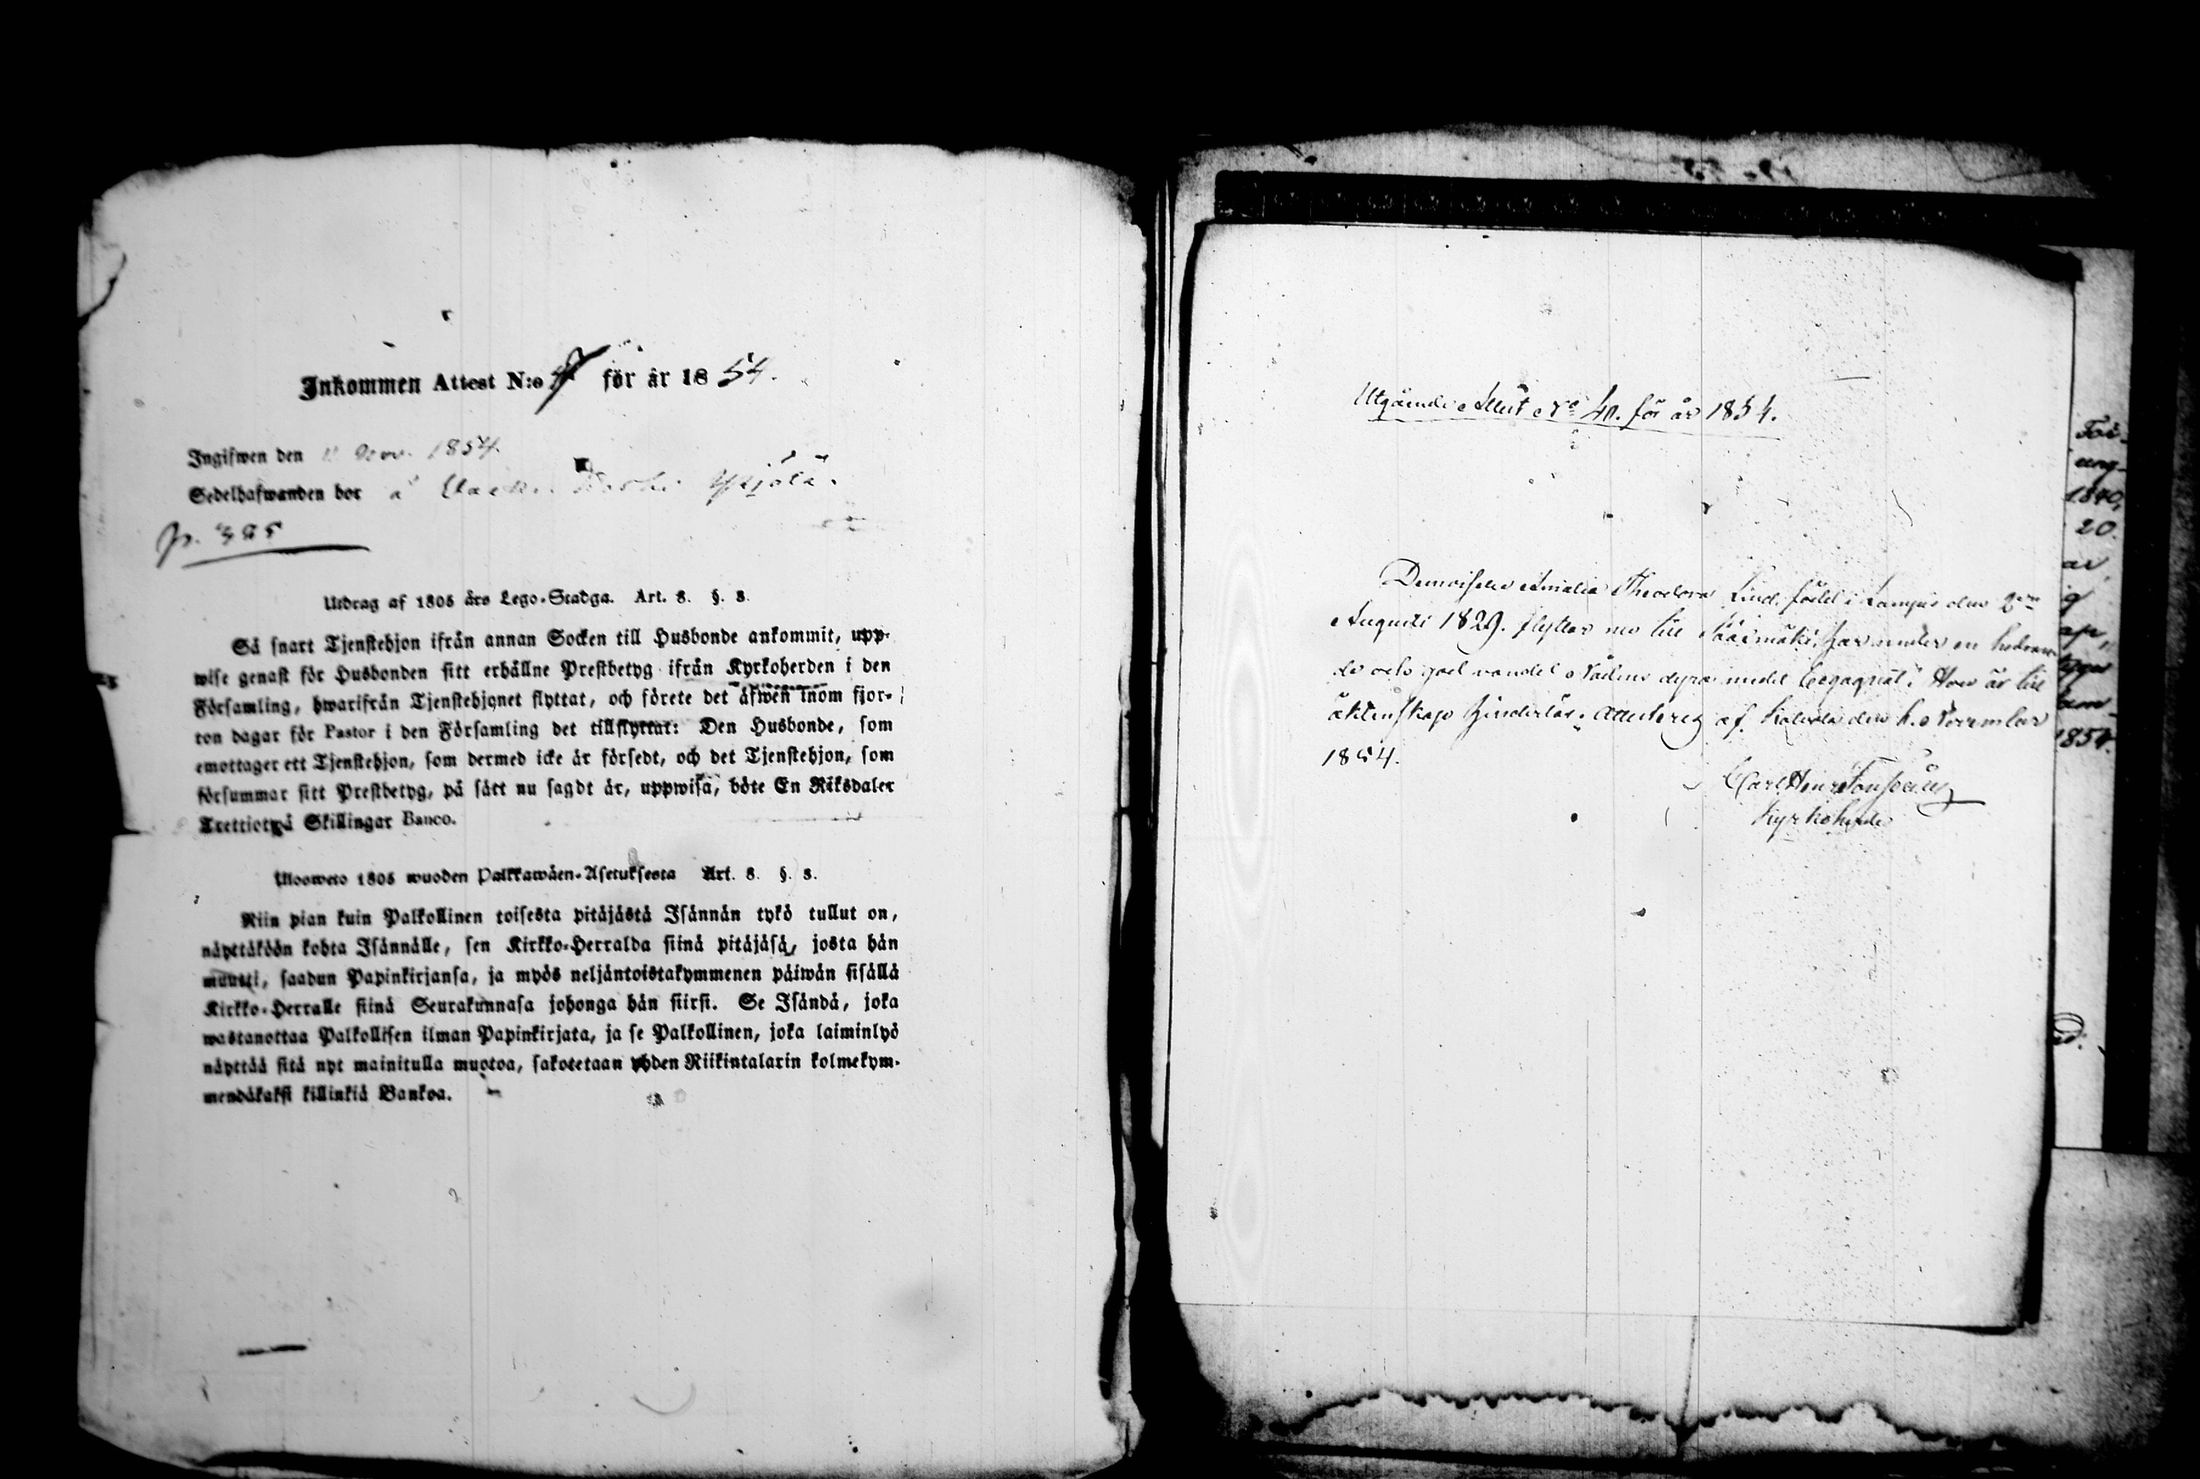 Inkommen Attest N:o 7 för år 1854.
Ingifwen den 11 Nov. 1854.
Sedelhafwanden bor å Ypäjälä.
p. 385
Utdrag af 1805 års Lego-Stadga. Art. 8. §. 8.
Så snart Tjenstehjon ifrån annan Socken till Husbonde ankommit, upp-
wise genast för Husbonden sitt erhållne Prestbetyg ifrån Kyrkoherden i den
Församling, hwarifrån Tjenstehjonet flyttat, och förete det äfwen inom fjor-
ton dagar för Pastor i den Församling det tillflyttat: Den Husbonde, som
emottager ett Tjenstehjon, som dermed icke är försedt, och det Tjenstehjon, som
försummar sitt Prestbetyg, på sätt nu sagdt är, uppwisa, böte En Riksdaler
Trettiotwå Skillingar Banco.
Ulosweto 1805 wuoden Palkkawäen-Asetuksesta Art. 8. §. 8.
Niin pian kuin Palkollinen toisesta pitäjästä Isännän tykö tullut on,
näyttäköön kohta Isännälle, sen Kirkko-Herralda siinä pitäjäsä, josta hän
muutti, saadun Papinkirjansa, ja myös neljäntoistakymmenen päiwän sisällä
Kirkko-Herralle siinä Seurakunnasa johonga hän siirsi. Se Isändä, joka
wastanottaa Palkollisen ilman Papinkirjata, ja se Palkollinen, joka laiminlyö
näyttää sitä nyt mainitulla muotoa, sakotetaan yhden Riikintalarin kolmekym-
mendäkaksi killinkiä Bankoa.
Utgående Attest No 40. för år 1854.
Demoiselle Amalia Theodora Lind, född i Lampis den 2dra
Augusti 1829. flyttar nu till Sääxmäki; har under en hedran-
de och god vandel Nådens dyra medel begagnat; Hon är till
äktenskap hinderlös; Attesterez af Kalvola den 4. November
1854.
Carl Henr
Kyrkoherde
1840,
20.
1854.